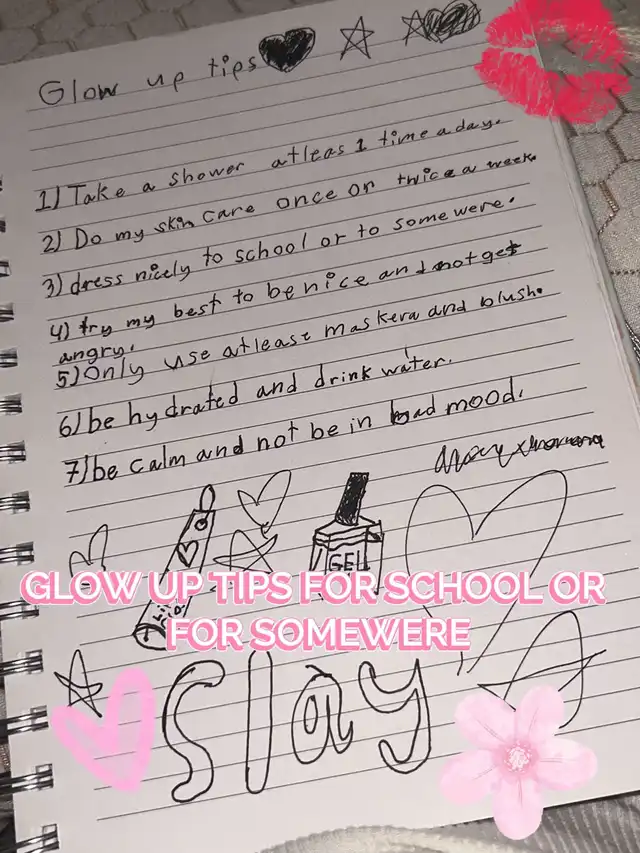 Glow up tips
1) Take a shower atleas 1 time a day.
2) Do my skin care once or twice a week.
3) dress nicely to school or to somewere.
4) try my best to be nice and not get
angry.
5) Only use atlease maskera and blush.
6) be hydrated and drink water.
7) be calm and not be in bad mood.
GEL
GLOW UP TIPS FOR SCHOOL OR
FOR SOMEWERE
Slay